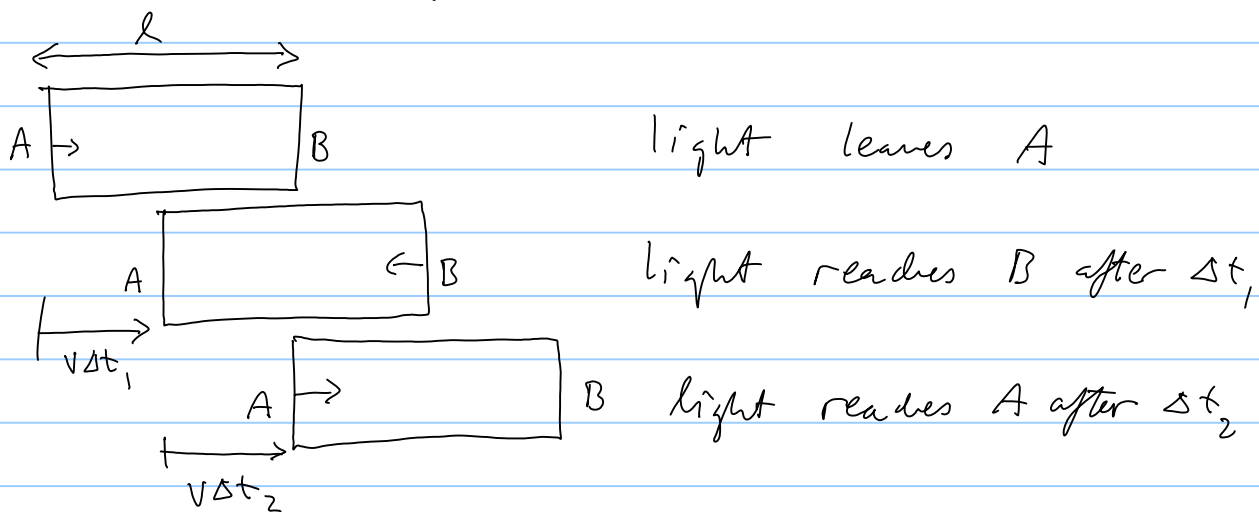 l
A B light leaves A
A B light reaches B after Δt₁
vΔt₁
A B light reaches A after Δt₂
vΔt₂